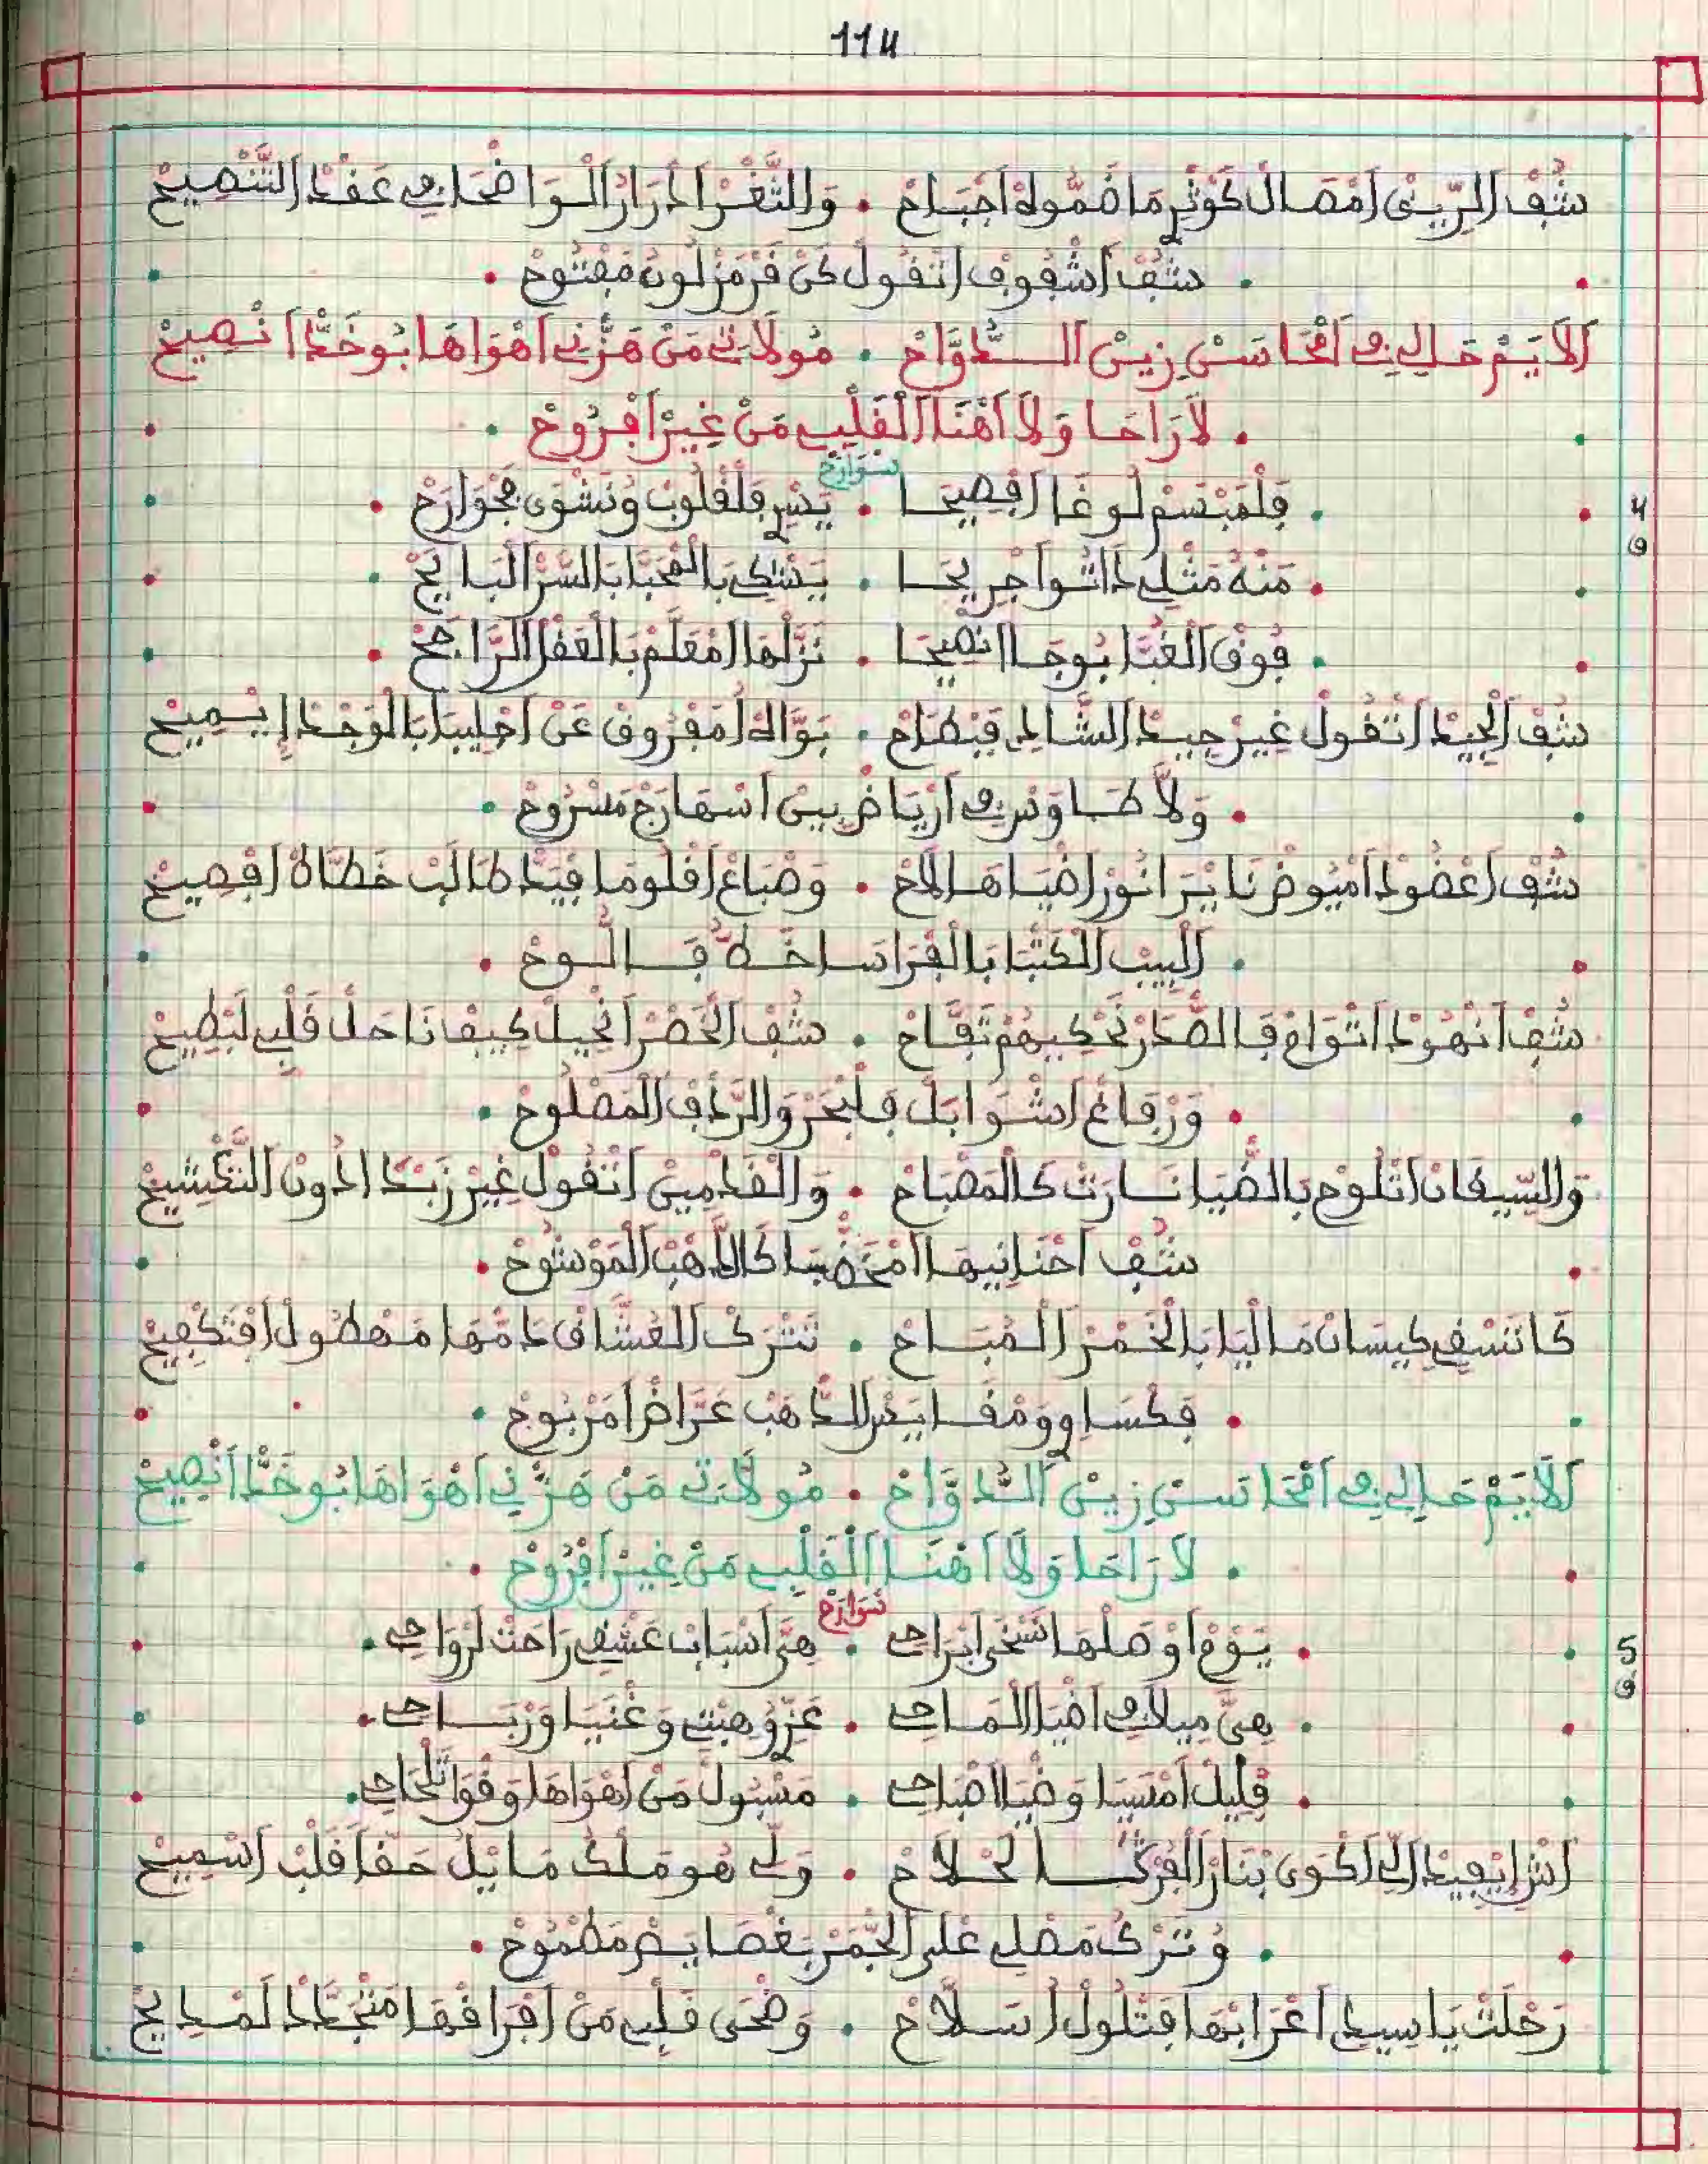 114
شُفْ الرِّيقْ أمْصَالْ كَوْثَرْ مَا ضَمُّوهْ أجْبَاحْ • وَالثَّغْرْ أدْرَارْ الْوَاضْحَا فِي عَقْدْ التَّنْصِيحْ
• شُفْ أشْفُوفْ اتْقُولْ كَنْ قَرْمَزْ لُونُ مَفْتُوحْ •
ألَايَمْ حَالِي فِي أمْحَاسَنْ زِينْ الدَّوَّاحْ • مُولَاتِي مَنْ هَزْنِي أهْوَاهَا بُوخَدّْ أنْصِيحْ
• لَا رَاحَا وَلَا أهْنَا الْقَلْبِي مَنْ غِيرْ أفْرُوحْ •
سَوَارَحْ
4
• فَلْمَبْسَمْ لُوغَا افْصِيحَا • يَسْرِ فَلْقْلُوبْ وُتَشْوَى بَجْوَارَحْ •
و
• مَنْهُ مَثْلِي ذَاتُ أجْرِيحَا • يَشْكِي بَالْمْحَبَّا بَالسَّرْ الْبَايَحْ •
• فُوقْ الْغَبَّا بُوجَا انْصِيحَا • نَزّلْهَا أمْعَلَّمْ بَالْعَقْلْ الرَّاجَحْ •
شُفْ الْجِيدْ اتْقُولْ غِيرْ جِيدْ الشَّادِ فَبْطَاحْ • بَوَّاهْ أمَفْرُوقْ عَنْ أحْلِيبَا بَالْوَجْدْ إيْسِيحْ
• وَلَّا طَاوَسْ فِي أرْيَاضْ بِينْ أسْهَارَجْ مَسْرُوحْ •
شُفْ أعْضُودْ أمْيُوضْ نَايْرَا نُورْ أضْيَاهَا لَاحْ • وَصْبَاعْ أقْلُومَا فَيَدّْ طَالَبْ خَطَّاهْ أفْصِيحْ
• الْبِيبْ الْكَتْبَا بَالْفْرَاسَا خَطُّ فَالُّوحْ •
شُفْ أنْهُودْ اتْوَامْ فَالصّْدَرْ نَحْكِيهُمْ تَفَّاحْ • شُفْ الْخَصْرْ أنْحِيلْ كِيفْ نَاحَلْ قَلْبِي لَبْطِيحْ
• وَرْفَاغْ اشْوَابَلْ فَلْبْحَرْ وَالرَّدْفْ الْمَصْلُوحْ •
وَالسِّيقَانْ اتْلُوحْ بَالضّْيَا نَسَارَتْ كَالْمَصْبَاحْ • وَالْقَدْمِينْ اتْقُولْ غِيرْ زَبْدَا ادُونْ التَّكْشِيحْ
شُفْ أحْنَانِيهَا أمْخَضْبَا كَالذّْهَبْ الْمَوْشُوحْ •
كَاتَسْقِي كِيسَانْ مَالْيَا بَالْخَمْرْ الْمُبَاحْ • تَتْرَكْ الْعُشَّاقْ دَمّْهَا مَهْطُولْ أفْتَكْفِيحْ
• فَكْسَاوِي وَمْقَايَسْ الدّْهَبْ عَرَّاضْ أمَرْبُوحْ •
ألَايَمْ حَالِي فِي أمْحَاسَنْ زِينْ الدَّوَّاحْ • مُولَاتِي مَنْ هَزْنِي أهْوَاهَا بُوخَدّْ أنْصِيحْ
• لَا رَاحَا وَلَا أهْنَا الْقَلْبِي مَنْ غِيرْ أفْرُوحْ •
سَوَارَحْ
5
• يَوْمْ أوْصَلْهَا نَسْخَى بَرَاحِي • هِيَّ أسْبَابْ عَشْقِي رَاحَتْ لَرْوَاحِي •
و
• هِيَّ مِيلَافِي أضْيَا الْمَاحِي • عَزِّي وُهِبْتِي وَغْنَيَا وَرْبَاحِي •
• قْلِيلْ أمْسَيَا وَضْيَا اصْبَاحِي • مَشْبُولْ مَنْ أهْوَاهَا وَقْوَا تَلْحَاحِي •
أشْ إيْفِيدْ الِّي أكْوَى بْنَارْ الْفُرْكَا لَحْلَاحْ • وَلِّي هُو مَلْكْ مَايْلْ حَقّاً قَلْبْ أسْمِيحْ
• وُتَرْكْ مَصْلِي عْلَى الْجَمْرْ بَغْصَايَصْ مَطْمُوحْ •
رَحْلَتْ يَاسِيدِي أغْرَابْهَا فَتْلُولْ أسَلَّاحْ • وَضْحَى قَلْبِي مَنْ أفْرَاقْهَا مَتْجَدّدْ لَمْدَايَحْ